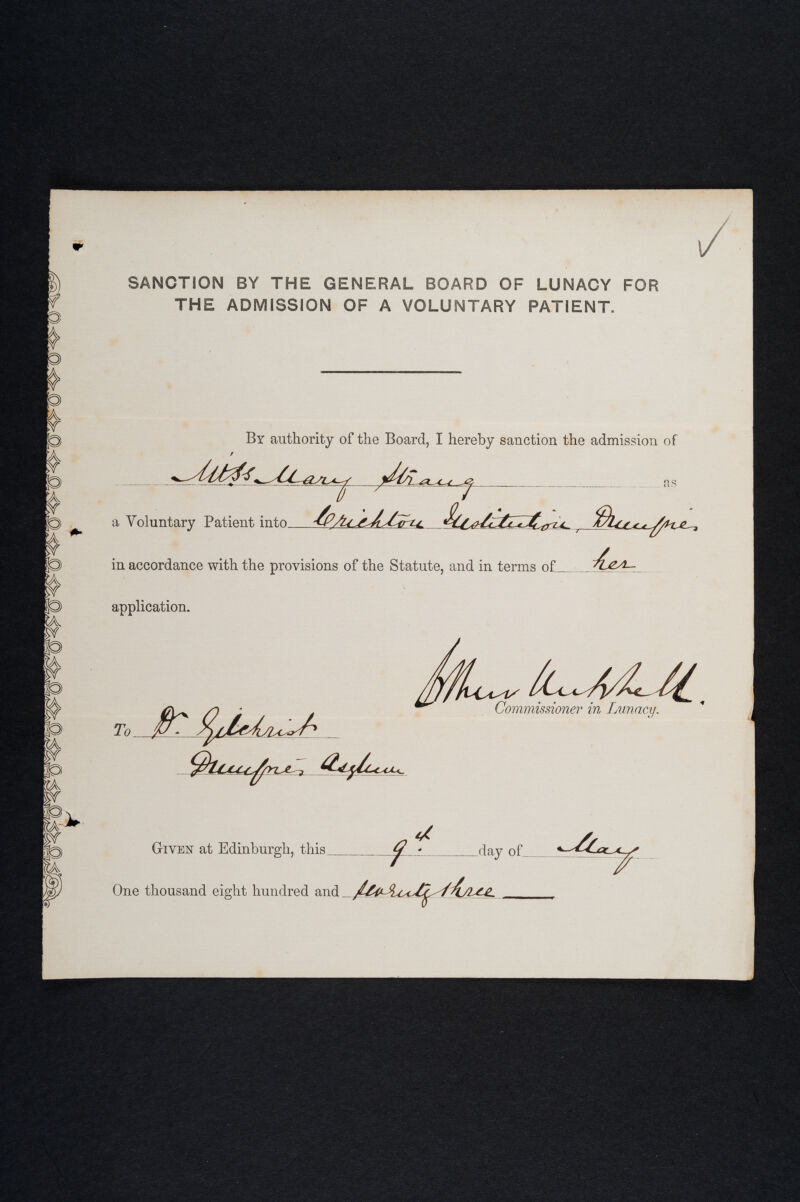 SANCTION BY THE GENERAL BOARD OF LUNACY FOR
THE ADMISSION OF A VOLUNTARY PATIENT.
BY authority of the Board, I hereby sanction the admission of
Miss Mary Strang as
a Voluntary Patient into Crichton Institution, Dumfries
in accordance with the provisions of the Statute, and in terms of her
application.
Arthur Mitchell.
Commissioner in Lunacy.
To Dr. Gilchrist
Dumfries Asylum
GIVEN at Edinburgh, this 9th. day of May
One thousand eight hundred and seventy three